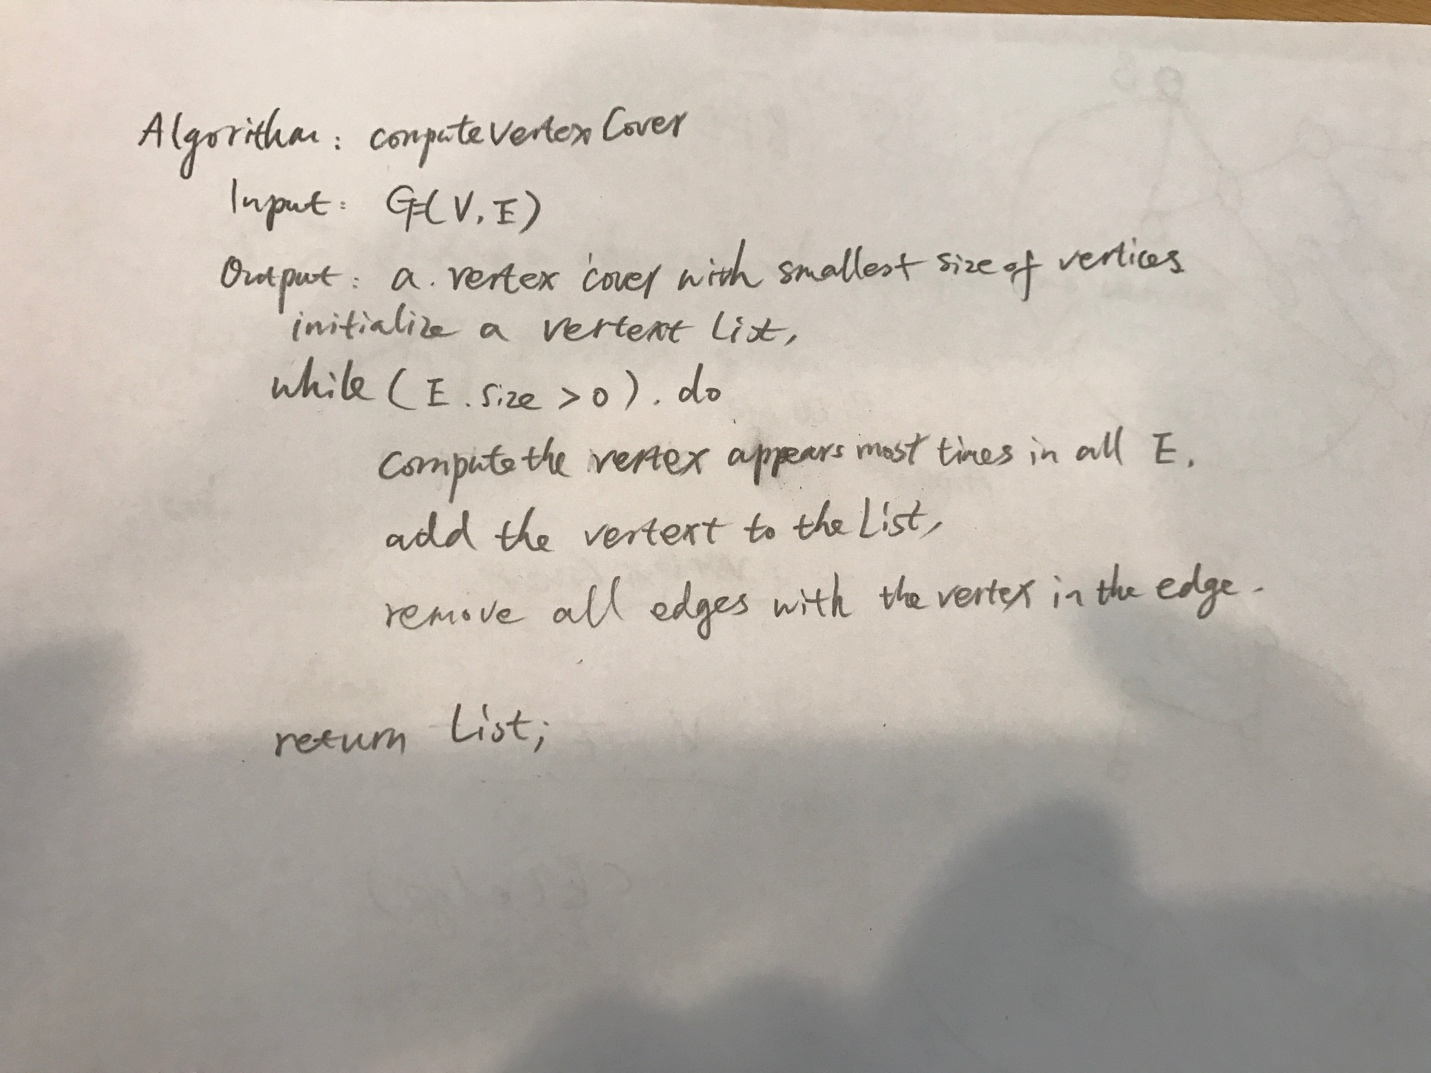 Algorithm: compute Vertex Cover
Input: G=(V, E)
Output: a. vertex cover with smallest size of vertices
initialize a vertext List,
while (E.size > 0). do
compute the vertex appears most times in all E.
add the vertext to the List,
remove all edges with the vertex in the edge.
return List;